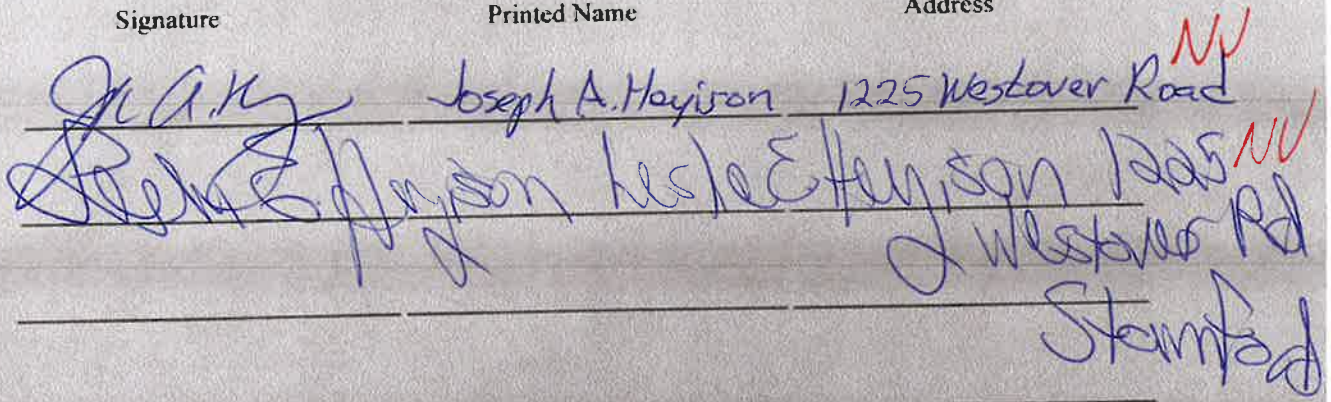 Signature Printed Name Address
Joseph A. Hayison 1225 Westover Road NV
Leslie E. Heyison Leslie E Heyison 1225 NV
Westover Rd
Stamford